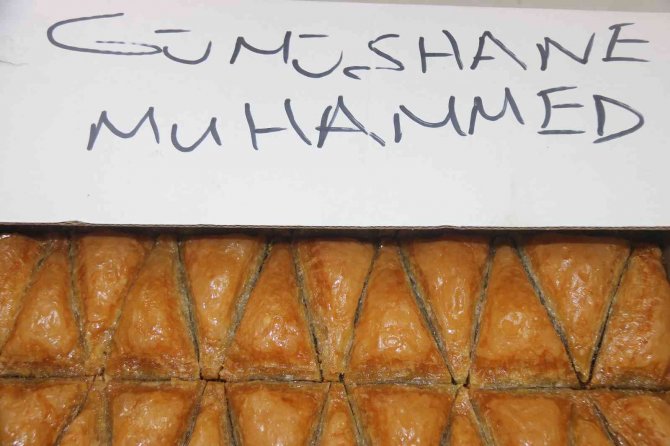 GÜMÜSHANE
MUHAMMED